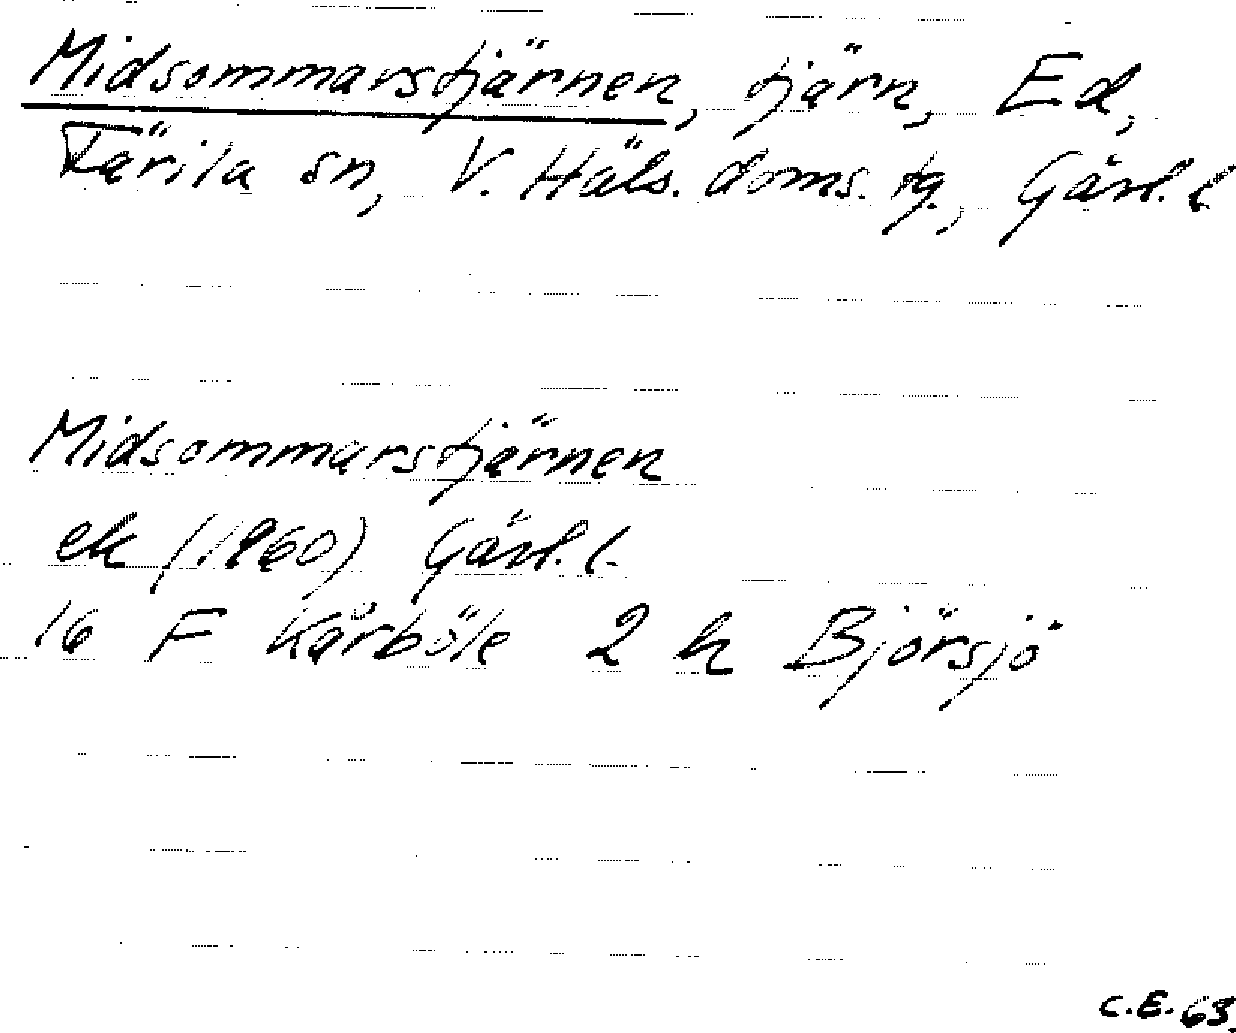 Midsommarstjärnen, tjärn, Ed,
Färila sn, V. Häls. doms. tg., Gävl. l
Midsommarstjärnen
ek (1960) Gävl. l.
16 F Kårböle 2 h Björsjö
C.E. 63.